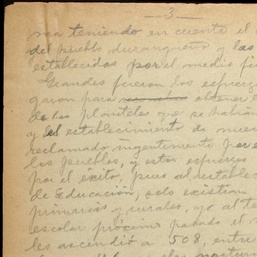 —3—
ma teniendo en cuenta el
del pueblo durangueño y las
establecidas por el medio fí
Grandes fueron los esfuerz
garon para obtener
de los planteles que se habían
y el establecimiento de nuev
reclamado urgentemente por
los pueblos, y estos esfuerzos
por el éxito, pues al estable
de Educación, solo existían
primarias y rurales, y al te
escolar próximo pasado el
les ascendió a 508, entre